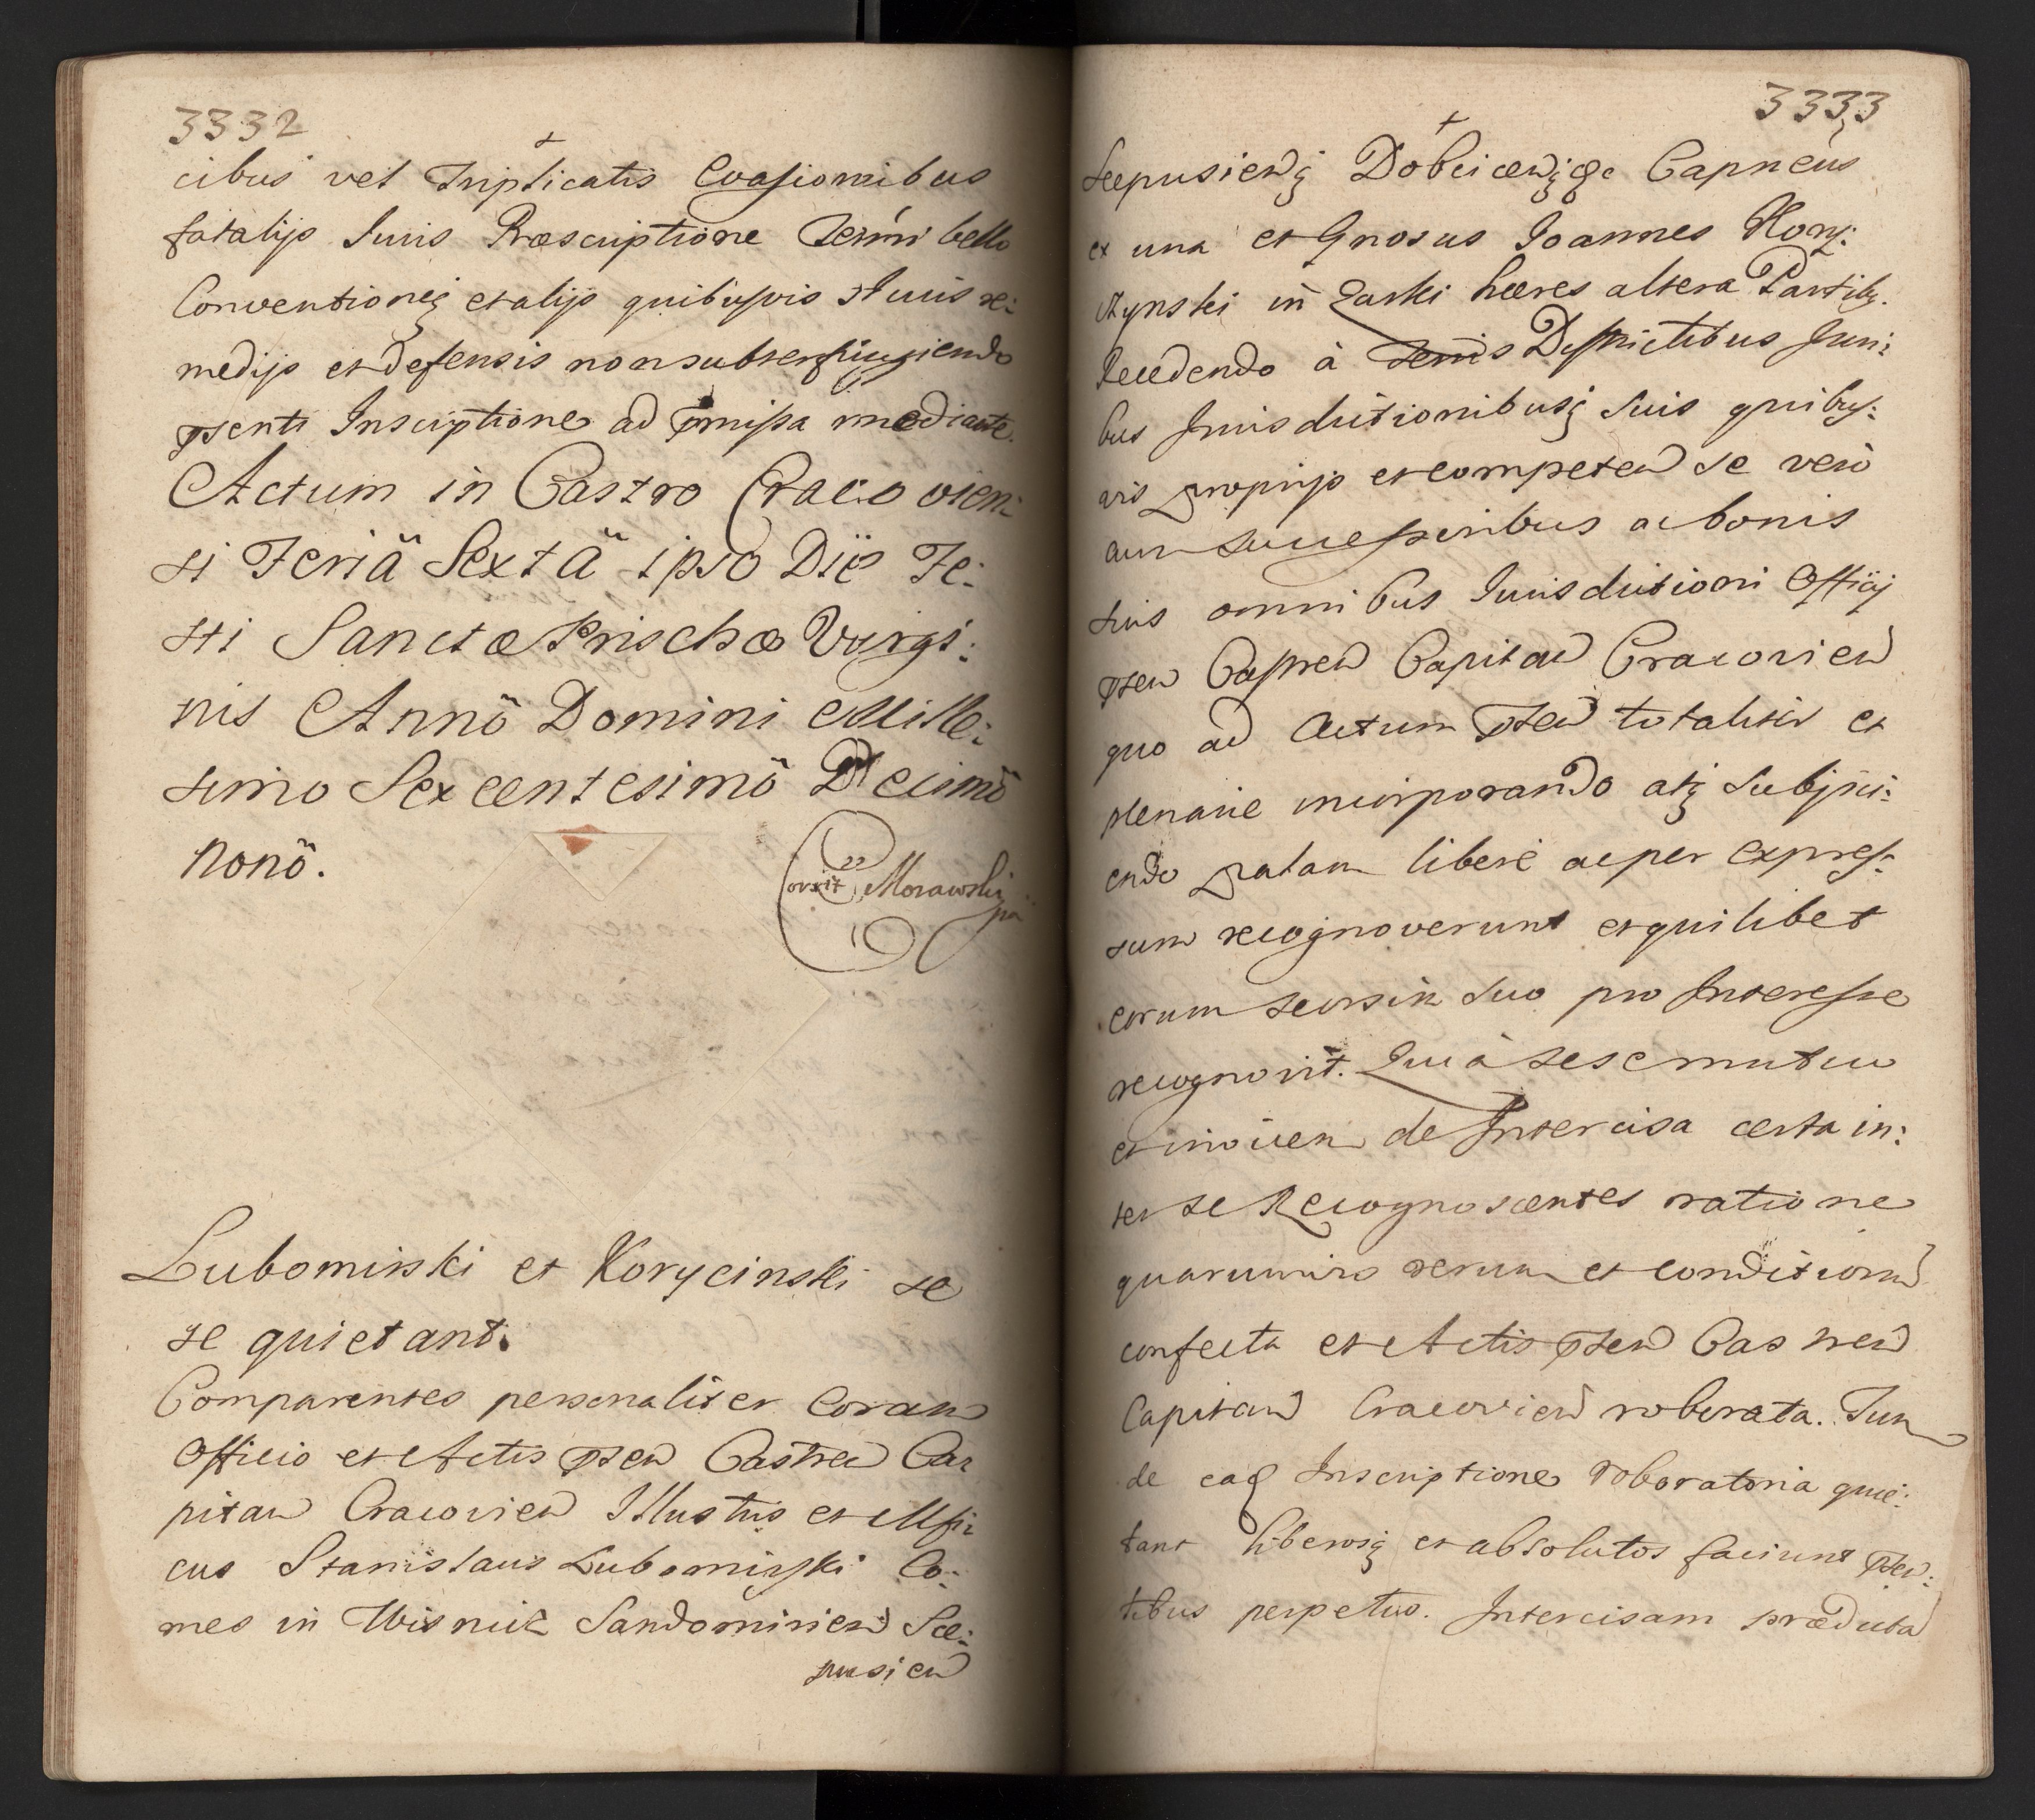 3332
cibus vel Triplicatis Evasionibus
fatalijs Iuris Præscriptione Termi bello
Conventioneq et alijs quibusvis Iuris re:
medijs et defensis non subterfugiendo
pnsenti Inscriptione ad pmissa mediante.
Actum in Castro Cracovien:
si Feriâ Sextâ ipso Die Fe:
sti Sanctæ Prischæ Virgi:
nis Annô Domini Mille:
simo Sexcentesimô Decimô
nonô.
Morawski
Lubomirski et Korycinski se
se quietant.
Comparentes personaliter Coram
Officio et Actis pnsen Castren Ca
pitan Cracovien Illustris et Mfi
cus Stanislaus Lubomirski Co:
mes in Wisnicz Sandomirien Sce:
pusien
3333
Scepusienq Dobcicenqqe Capneus
ex una et Gnosus Joannes Kory:
czynski in Zarki hæres altera Partibq.
Recedendo à Terris Districtibus Juri:
bus Jurisdictionibusq suis quibus:
vis proprijs et competen se vero
cum successoribus ac bonis
suis omnibus Iurisdictioni Officij
pnsen Castren Capitan Cracovien
quo ad Actum pnsen totaliter et
plenarie incorporando atq subjici:
endo palam libere ac per expres:
sum recognoverunt et quilibet
eorum seorsim suo pro Interesse
recognovit. Quia sese mutuo
et invicem de Intercisa certa in:
ter se Recognoscentes ratione
quarumvis rerum et condition
confecta et Actis pnsen Castren
Capitan Cracovien roborata. Tum
de eaq Inscriptione roboratoria quie:
tant liberosq et absolutos faciunt pnsen:
tibus perpetuo. Intercisam præducta